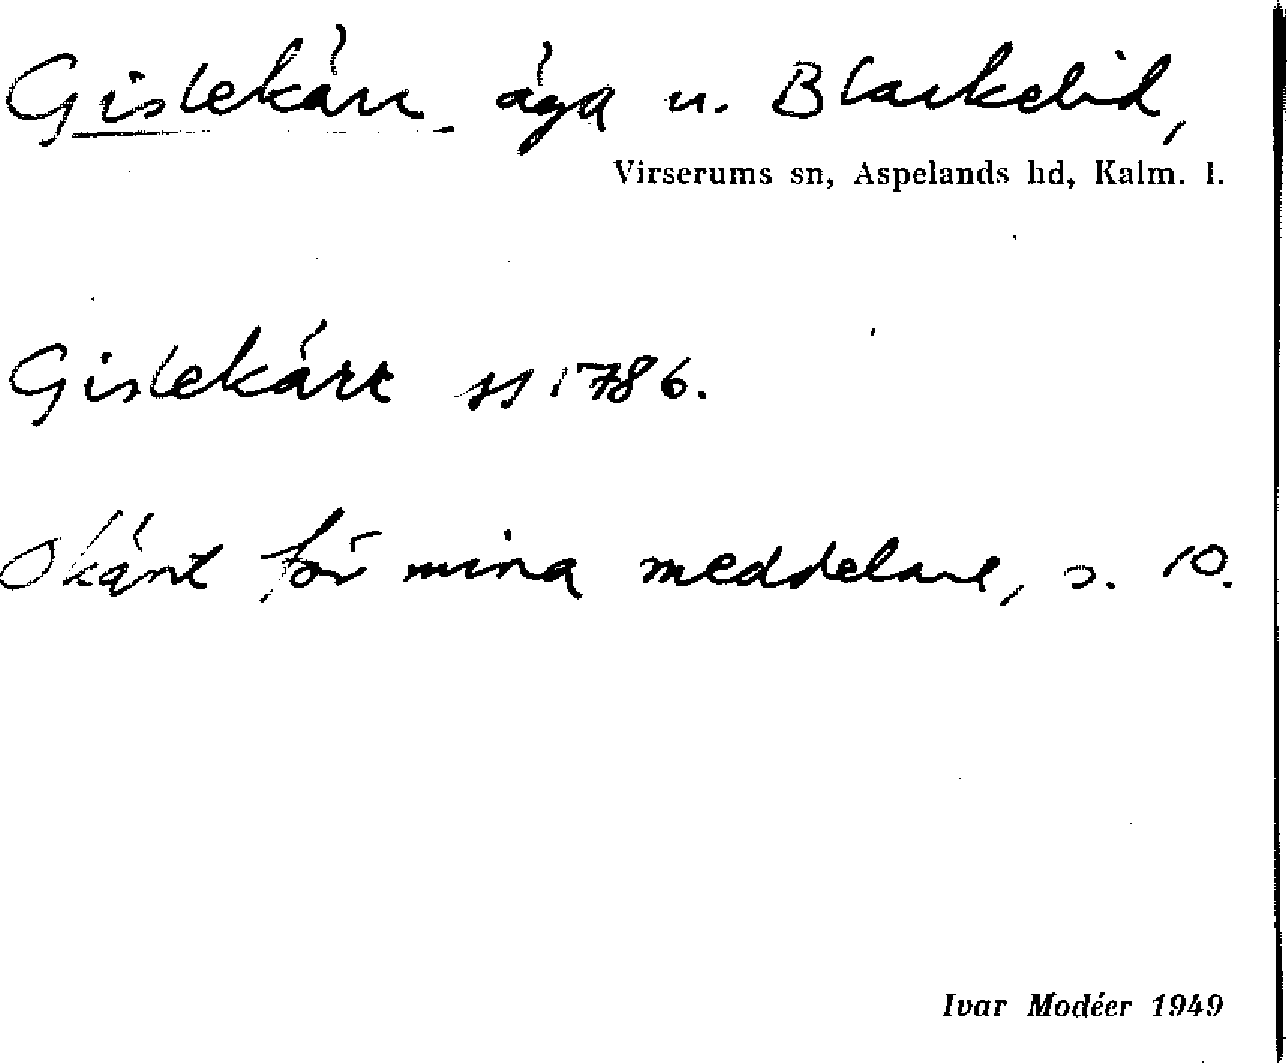 Gislekärr äga u. Blackelid,
Virserums sn, Aspelands hd, Kalm. l.
Gislekärr ss 1786.
Okänt för mina meddelare, s. 10.
Ivar Modéer 1949